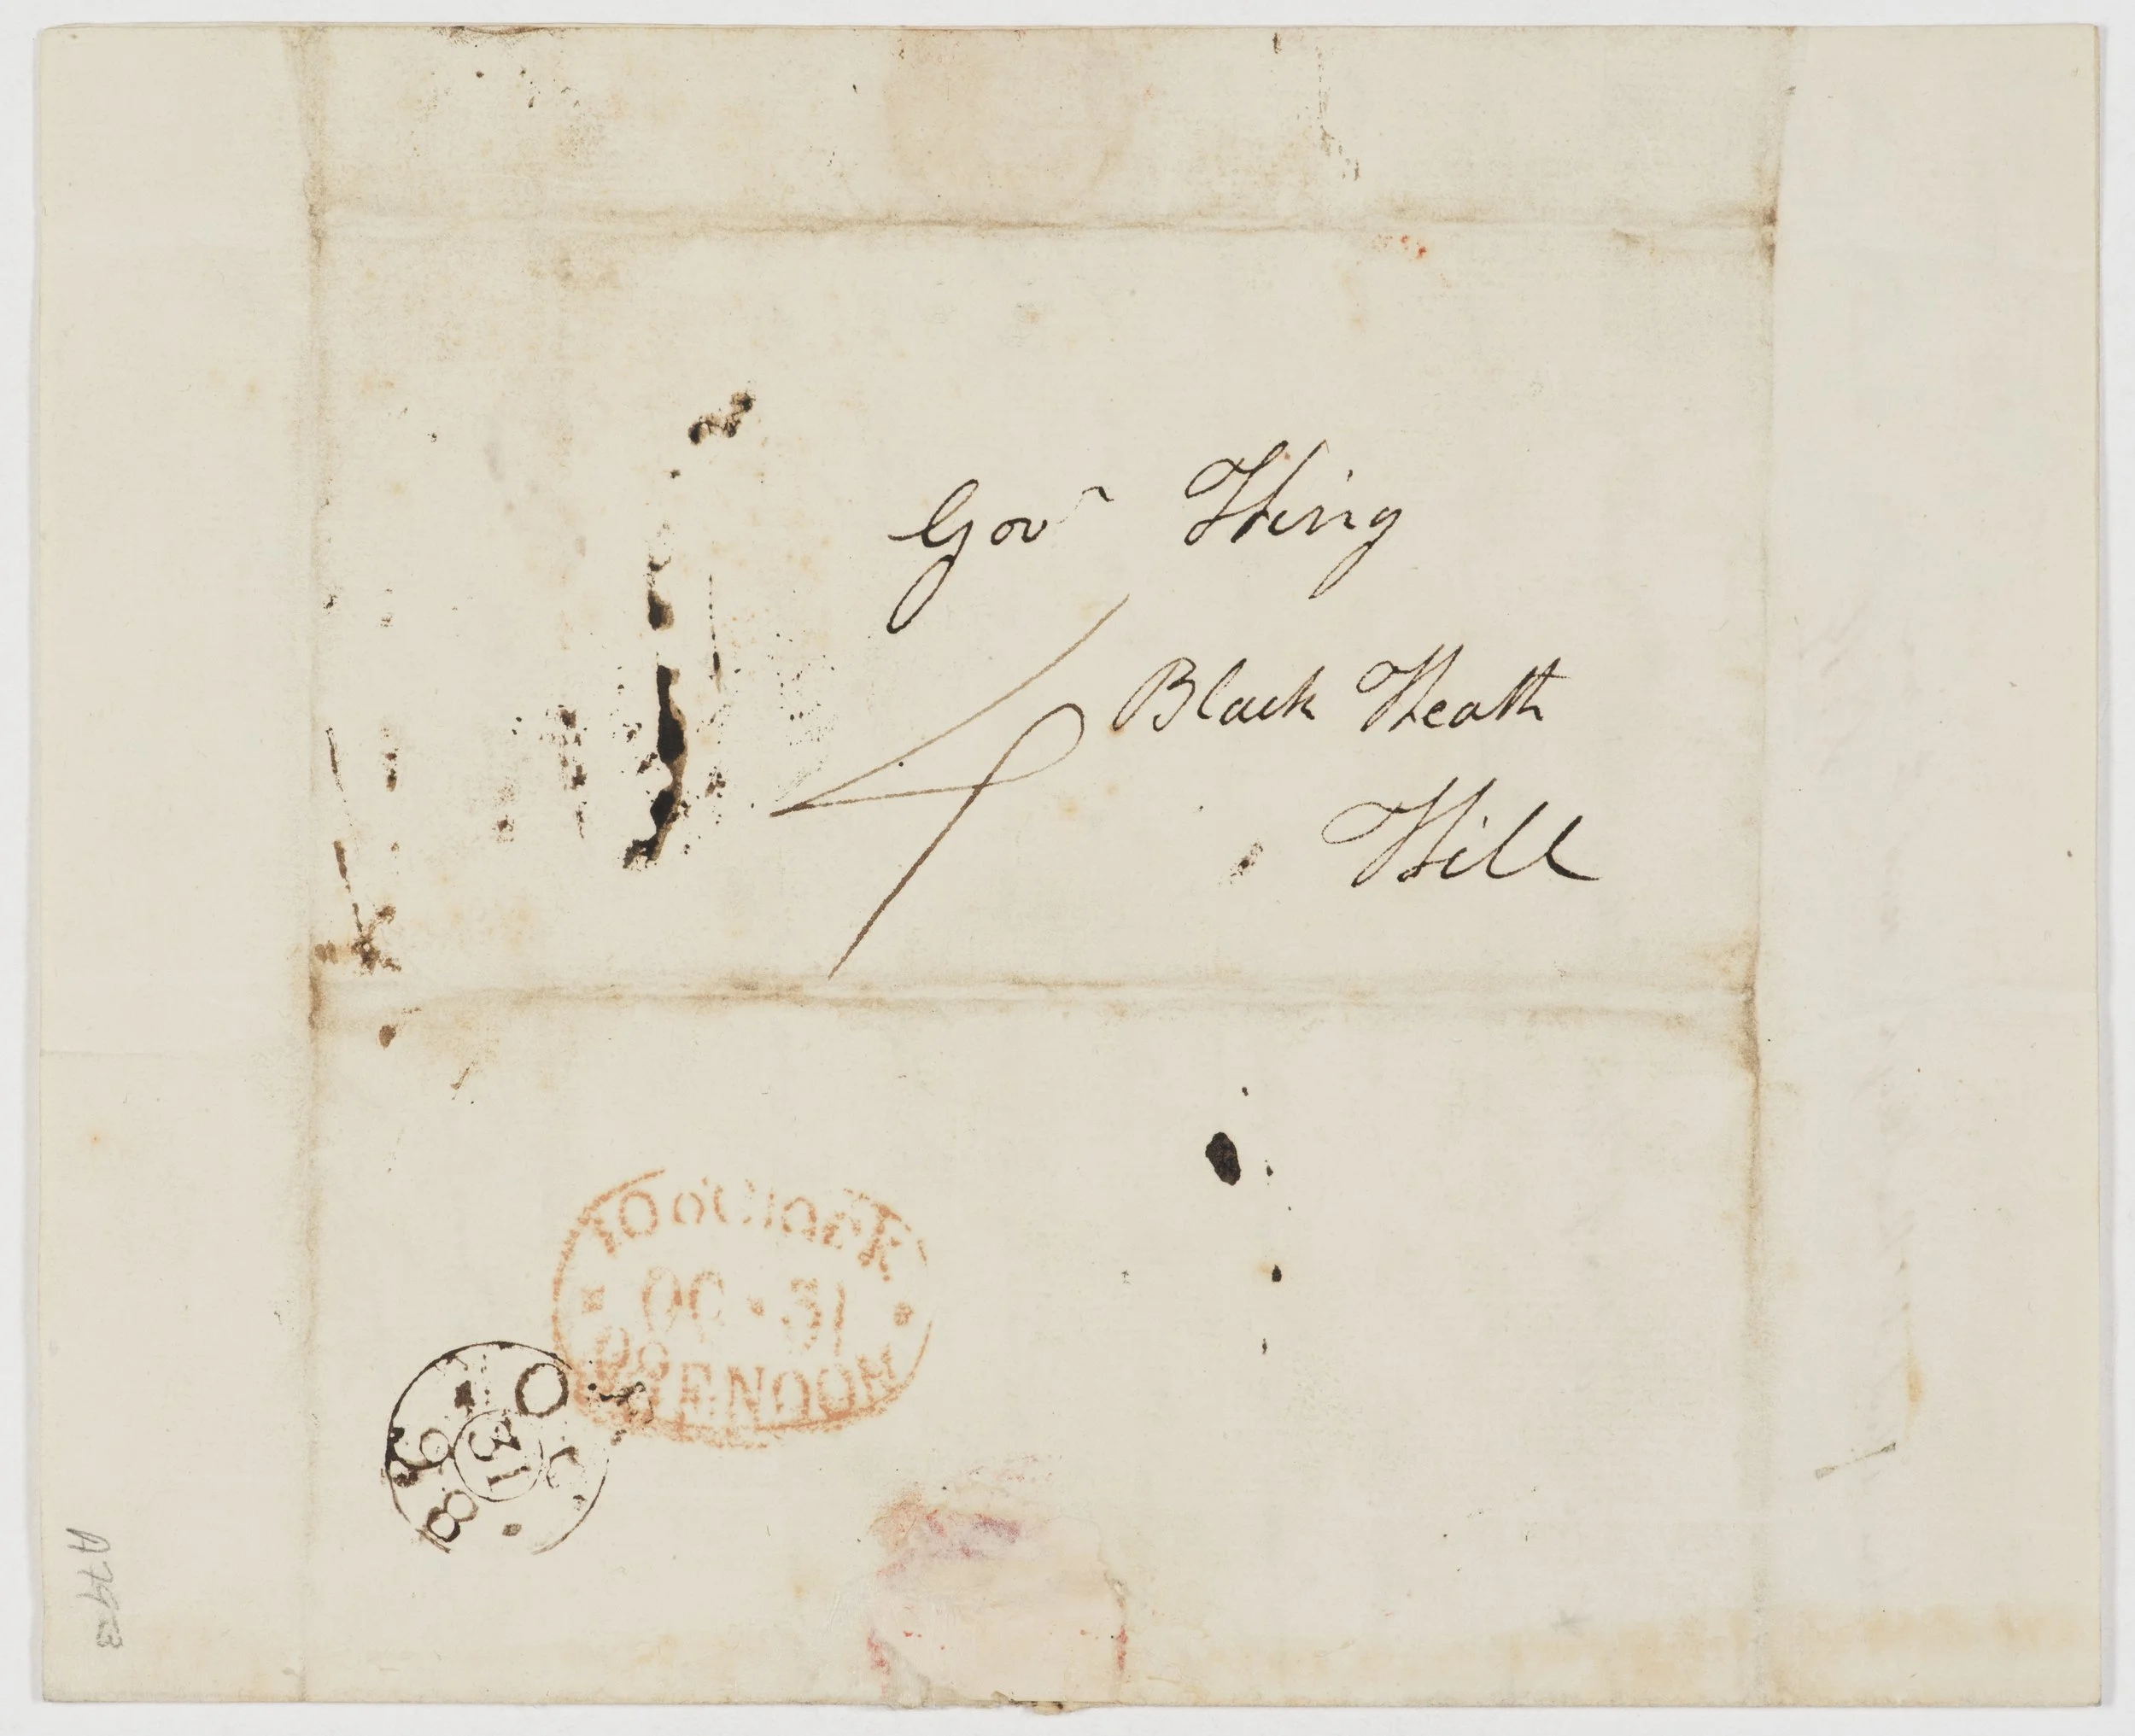 Gov^r King
4
Black Heath
Hill
10 o'Clock
OC · 31
808
RENOON
OC
31
808
A 79-3